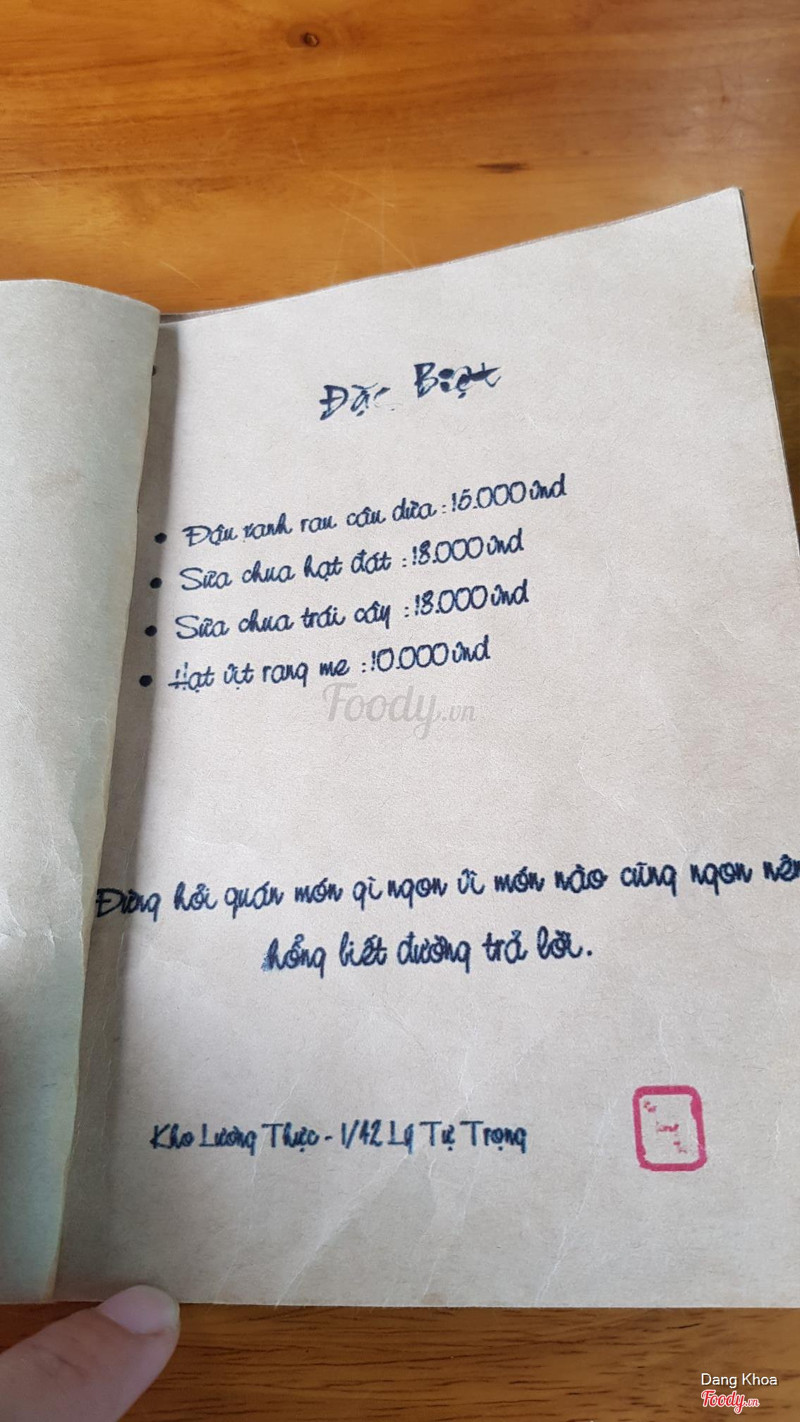 Đặc Biệt
• Đậu xanh rau câu dừa : 15.000 vnd
• Sữa chua hạt đát : 18.000 vnd
• Sữa chua trái cây : 18.000 vnd
• Hạt vịt rang me : 10.000 vnd
Foody.vn
Đừng hỏi quán món gì ngon vì món nào cũng ngon nên
hổng biết đường trả lời.
Kho Lương Thực - 1/42 Lý Tự Trọng
Dang Khoa
Foody.vn